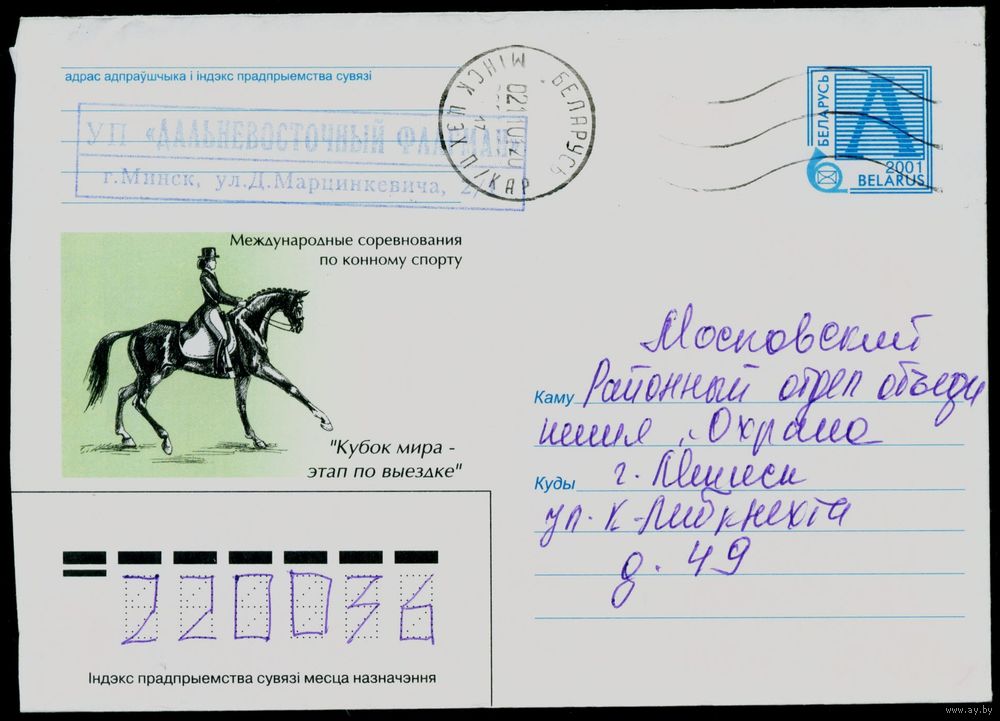 адрас адпраўшчыка і індэкс прадпрыемства сувязі
УП «ДАЛЬНЕВОСТОЧНЫЙ ФЛАГМАН»
г.Минск, ул.Д.Марцинкевича, 2/
БЕЛАРУСЬ
МІНСК ЦЭХ П/КАР
БЕЛАРУСЬ
A
2001
BELARUS
Международные соревнования
по конному спорту
"Кубок мира -
этап по выездке"
Московский
Каму Районный отдел объеди
нения "Охрана
Куды г. Минск
ул. К-Либкнехта
д. 49
220036
Індэкс прадпрыемства сувязі месца назначэння
www.ay.by